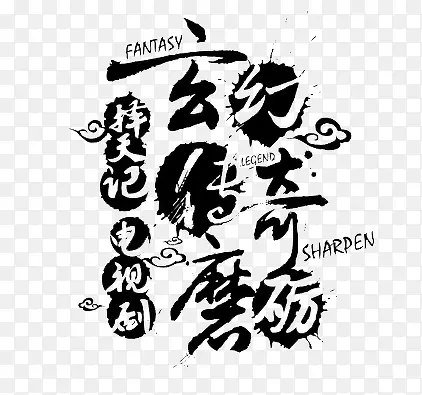 FANTASY
玄幻
传奇
LEGEND
磨砺
SHARPEN
择天记
电视剧